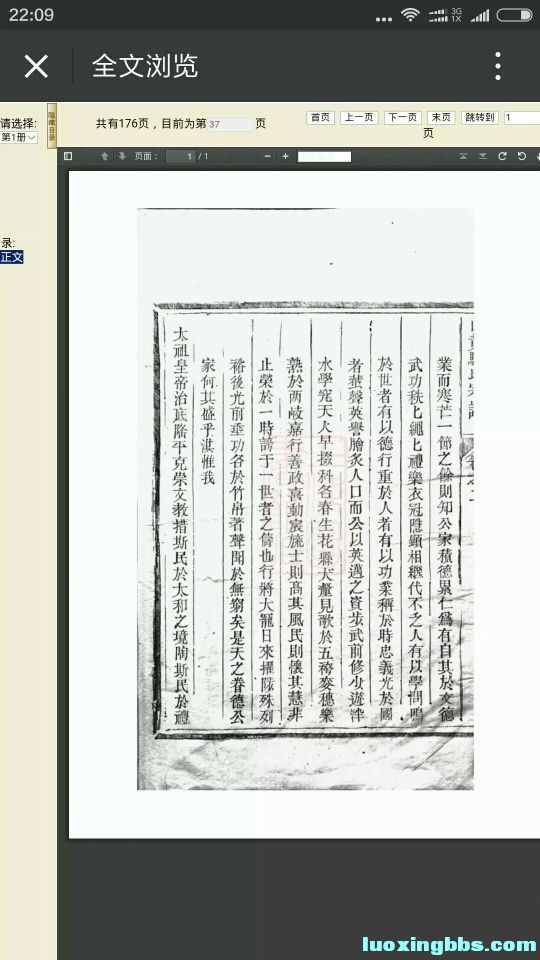 22:09
3G
1X
全文浏览
请选择:
第1册
隐藏目录
共有176页，目前为第 37 页
首页 上一页 下一页 末页 跳转到 1
页
录:
正文
页面： 1 / 1
業而寒芒一節之餘則知公家積德累仁爲有自其於文德
武功秩匕繩匕禮樂衣冠隱顯相繼代不乏人有以學問鳴
於世者有以德行重於人者有以功業稱於時忠義光於國
者蜚聲英譽膾炙人口而公以英邁之資步武前修少遊泮
水學究天人早掇科名春生花縣犬氂見歌於五袴麥穗樂
熟於两岐嘉行善政喜動宸旒士則高其風民則懷其慧非
止榮於一時謗于一世者之倚也行將大寵日來擢陟殊列
裕後光前垂功名於竹帛著聲聞於無窮矣是天之眷德公
家何其盛乎湛惟我
太祖皇帝治底隆平克崇文教措斯民於太和之境陶斯民於禮
luoxingbbs.com